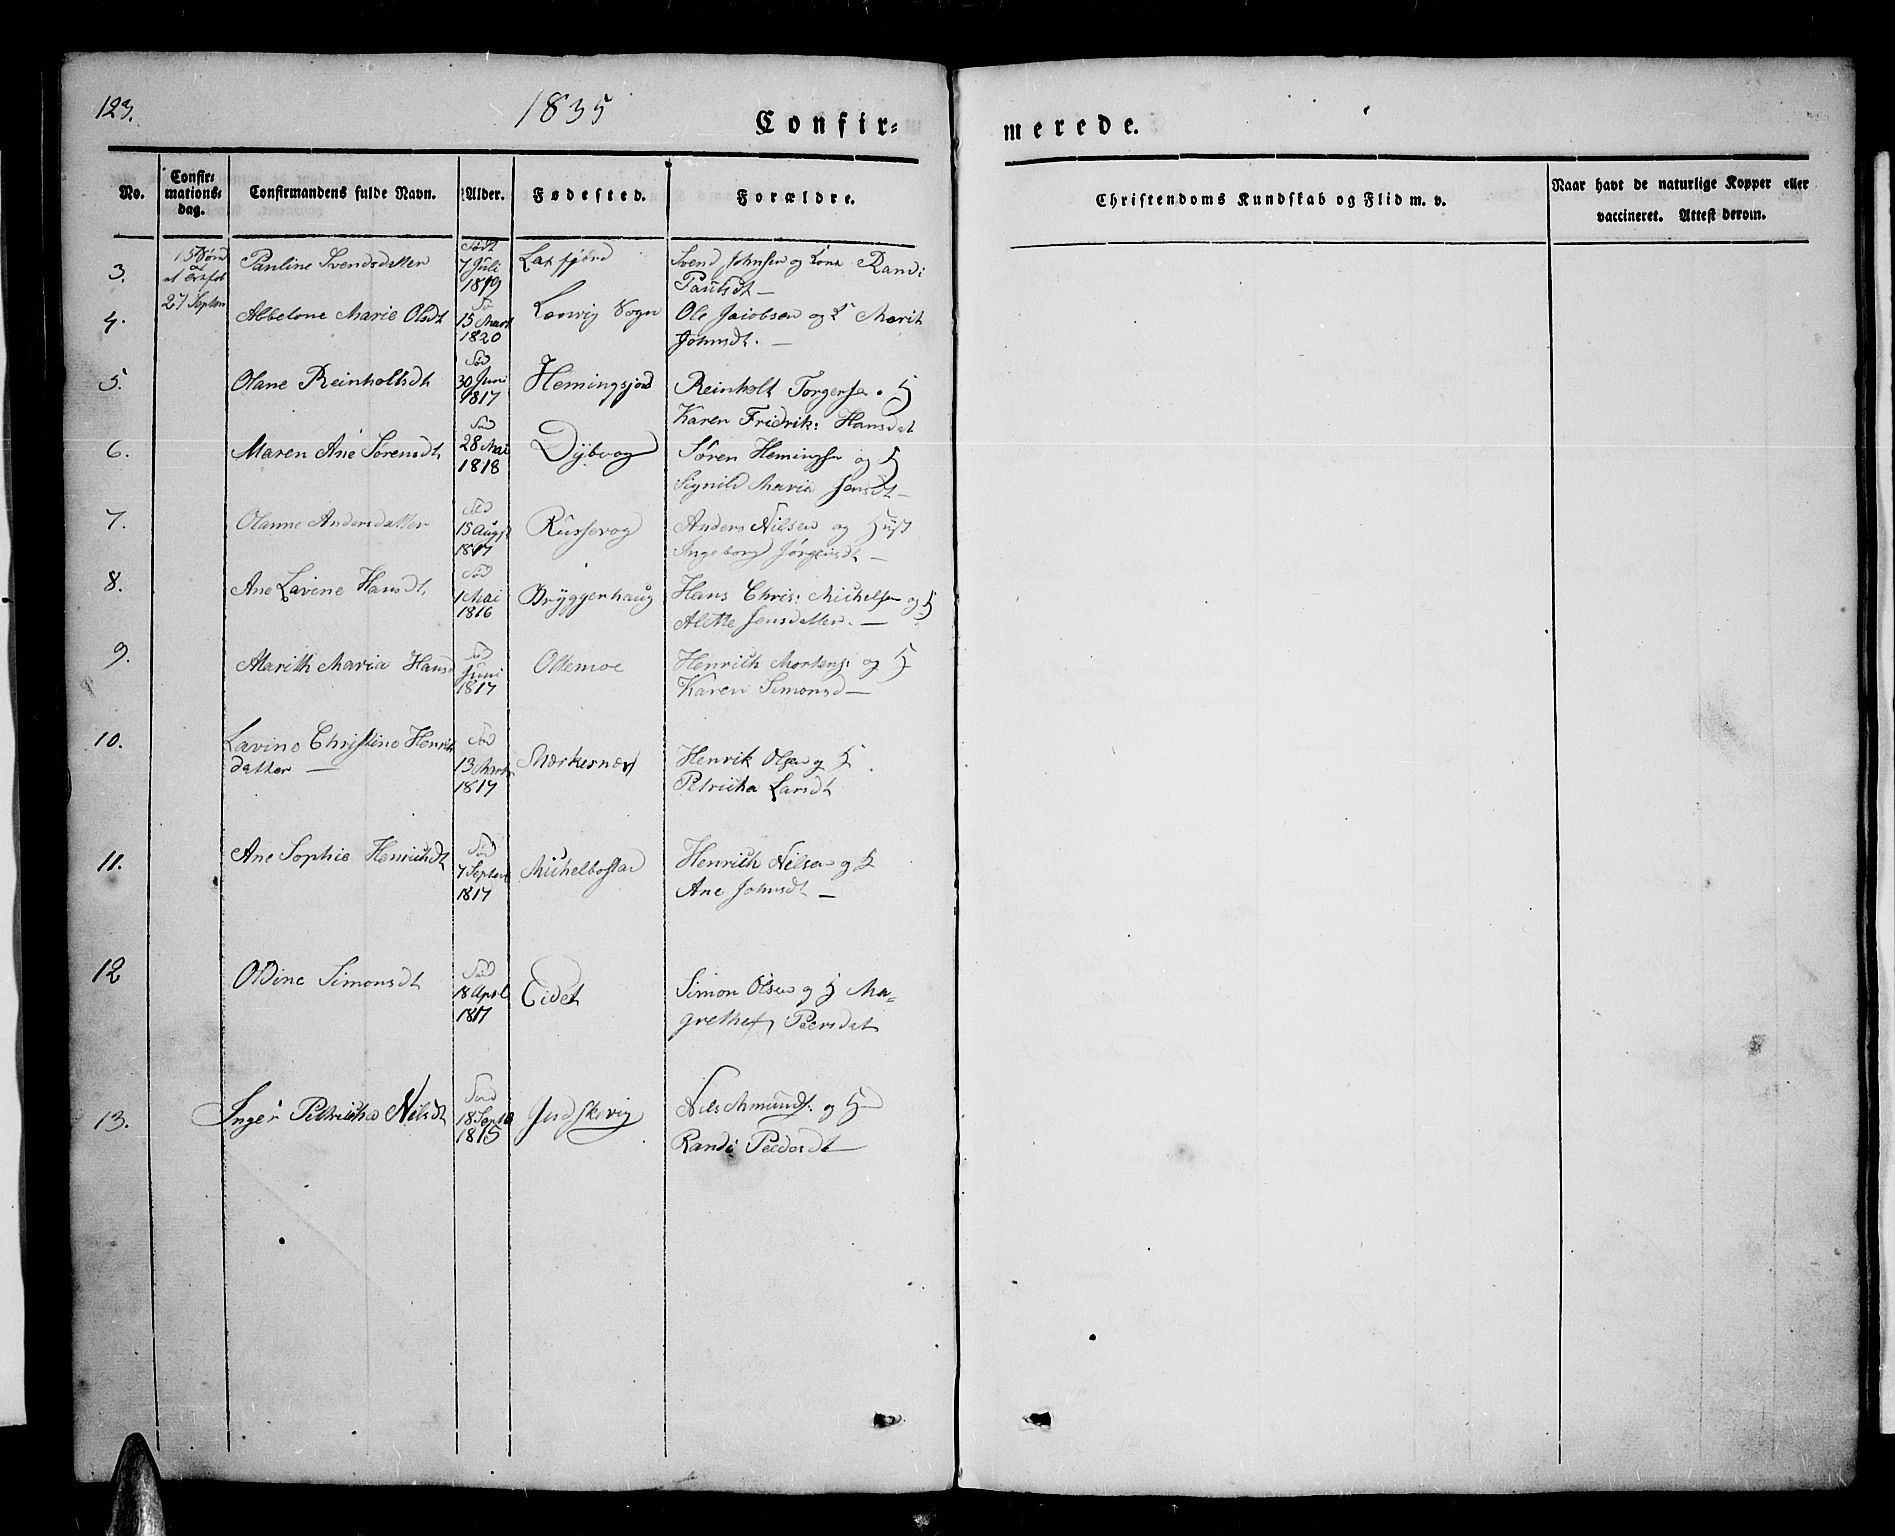 123.
1835
Confir=
merede.
No.
Confir-
mations-
dag.
Confirmandens fulde Navn.
Alder.
Fødested.
Forældre.
Christendoms Kundskab og Flid m. v.
Naar havt de naturlige Kopper eller
vaccineret. Attest derom.
3.
27 Septem
Pauline Svendsdatter
Født
7 Juli
1819
Laxfjord
Svend Johnsen og Kone Randi
Paulsdt —
4.
Abbelone Marie Olsdt
15 Mart
1820
Sogn
Ole Jacobsen og K Marit
Johnsdt. —
5.
Olane Reinholtsdt
Fød
30 Juni
1817
Hemingsjord
Reinholt Torgersen. H
Karen Fridrik: Hansdat
6.
Maren Ane Sørensdt
Fød
28 Mai
1818
Dybvog
Søren Hemingsen og H
Signild Maria Jensdt —
7.
Olanne Andersdatter
Fød
15 Augst
1817
Russevog
Anders Nilsen og Hust
Ingeborg Jørgensdt —
8.
Ane Lavine Hansdt
Fød
1 Mai
1816
Bryggenhaug
Hans Chris: Michelsen og H
Alette Jensdatter. —
9.
Marith Maria Hansd
Fød
Juni
1817
Ottemoe
Henrich Mortens: og H
Karen Simonsd —
10.
Lavine Christine Henrik
datter —
Fød
13 Marts
1817
Mærkesnæs
Henrik Olsen og H.
Petricha Larsdt
11.
Ane Sophie Henrichdt
Fød
7 Septem
1817
Michelbostad
Henrich Nilsen og H
Ane Johnsdt —
12
Oldine Simonsdt
Fød
18 April
1817
Eidet
Simon Olsen og H Ma=
grethe Peersdat
13.
Inger Petricha Nilsdt
Fød
18 Septb
1815
Nils Amunds. og H
Randi Pedersdt